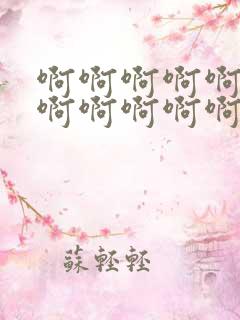 啊啊啊啊啊
啊啊啊啊啊
蘇輕輕